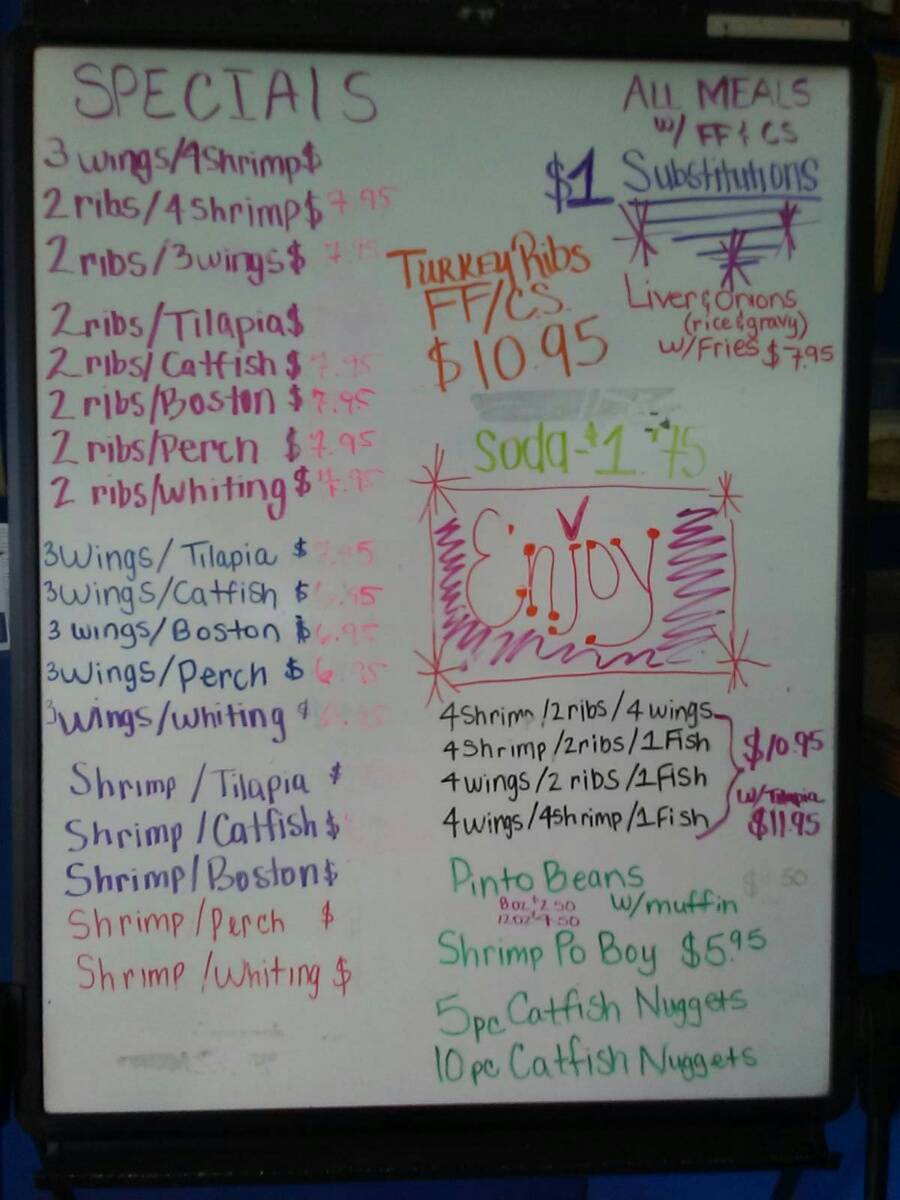 SPECIAlS
3 wings/4shrimp$
2 ribs/4shrimp$ 7.95
2 ribs/3wings$ 7.95
2ribs/Tilapia$
2 ribs/Catfish $ 7.95
2 ribs/Boston $ 7.95
2 ribs/Perch $ 7.95
2 ribs/whiting $
3Wings/Tilapia $
3Wings/Catfish $ 6.95
3 wings/Boston $ 6.95
3Wings/Perch $ 6.95
3Wings/Whiting $
Shrimp/Tilapia $
Shrimp/Catfish $
Shrimp/Boston$
Shrimp/Perch $
Shrimp/Whiting $
ALL MEALS
w/ FF & CS
$1 Substitutions
TURKEY Ribs
FF/CS.
$10.95
Liver & Onions
(rice & gravy)
w/Fries $7.95
Soda-$1.75
Enjoy
4Shrimp/2ribs/4wings
4Shrimp/2ribs/1Fish
4wings/2 ribs/1Fish
4wings/4shrimp/1Fish
$10.95
w/Tilapia
$11.95
Pinto Beans
8oz $2.50
12oz $4.50
w/muffin
Shrimp Po Boy $5.95
5pc Catfish Nuggets
10pc Catfish Nuggets